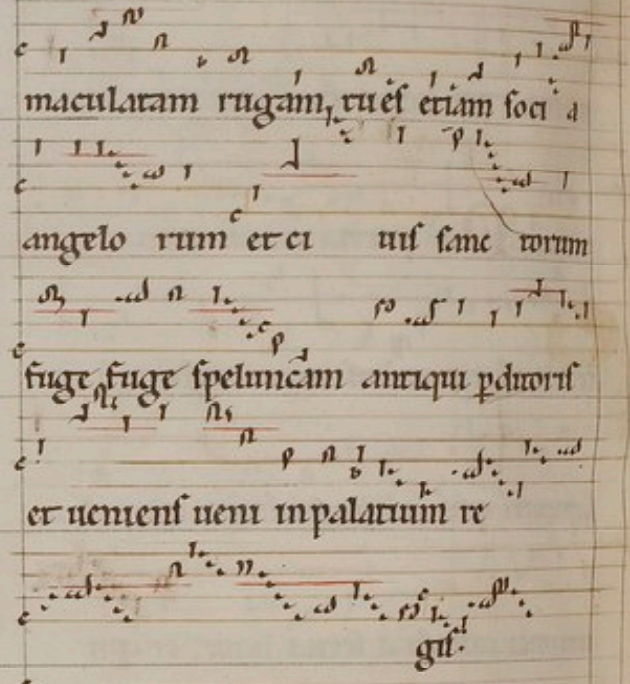 maculatam rugam, tu es etiam soci a
angelo rum et ci uis sanc torum
fuge fuge speluncam antiqui pditoris
et ueniens ueni in palatium re
gis.